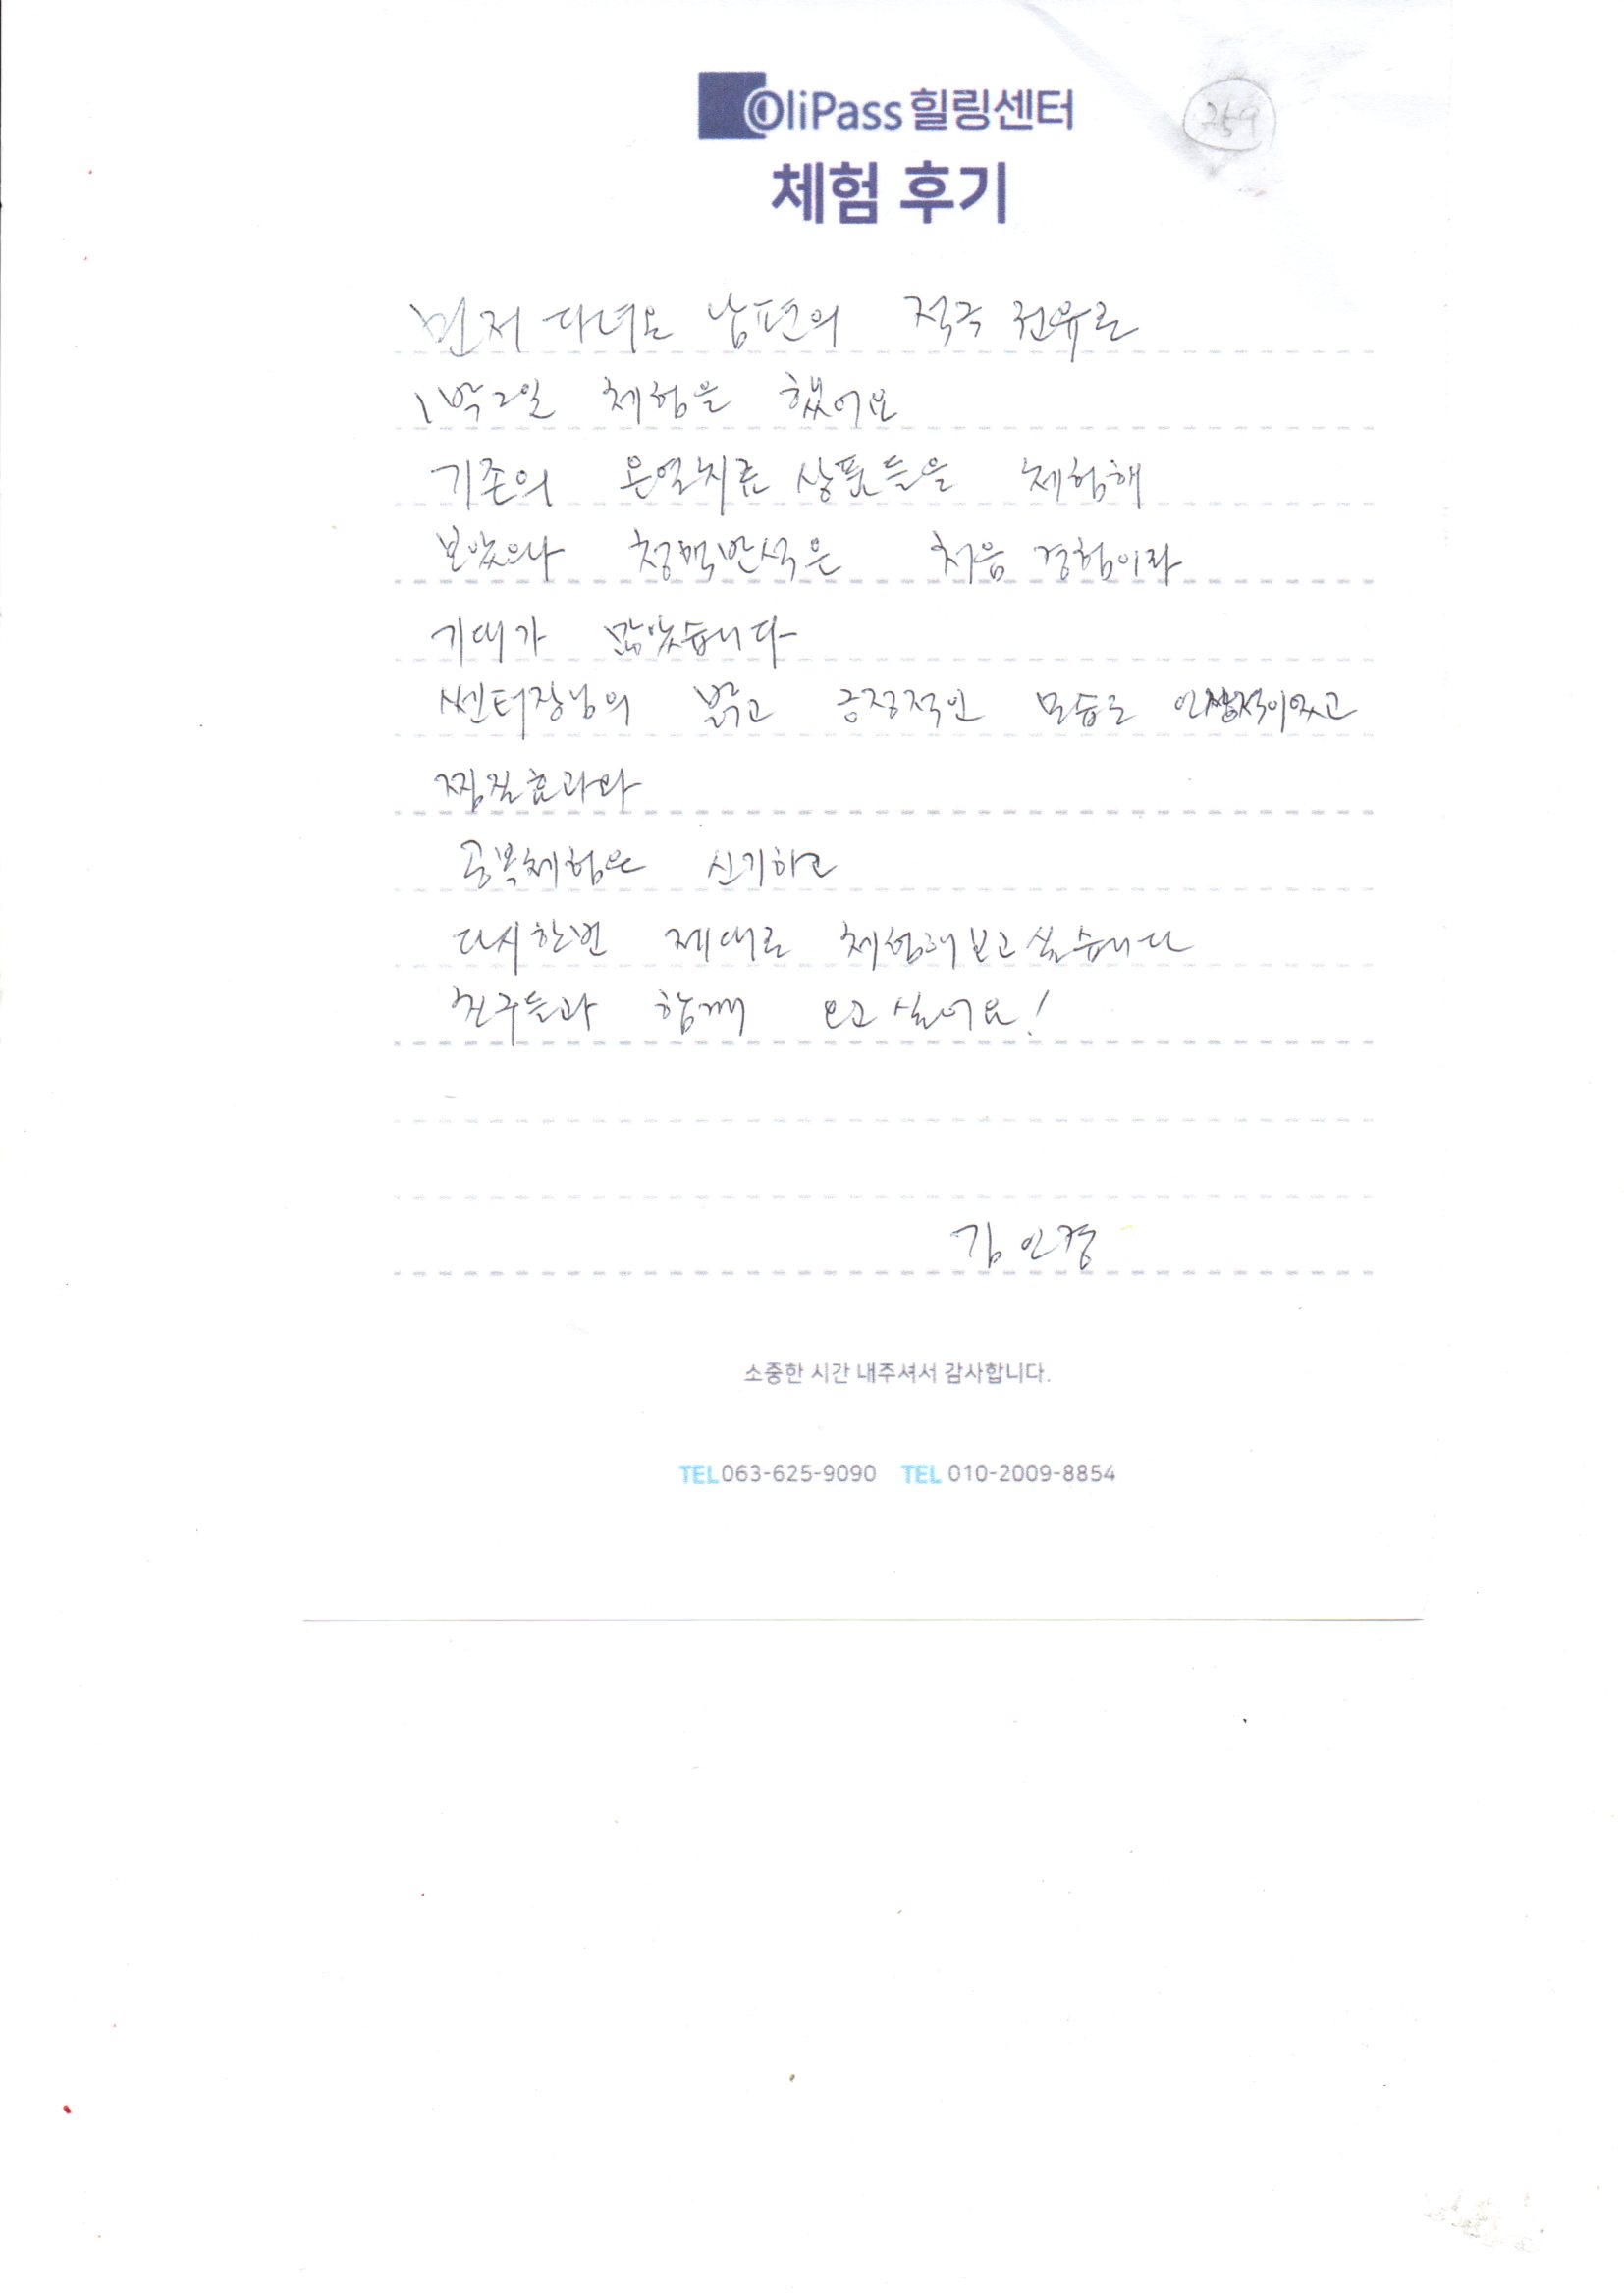 OliPass 힐링센터
259
체험 후기
먼저 다녀온 남편의 적극 권유로
1박2일 체험을 했어요
기존의 온열치료 상품들을 체험해
보았으나 청맥반석은 처음 경험이라
기대가 많았습니다
쎈터장님의 밝고 긍정적인 모습도 인상적이었고
찜질효과와
공복체험은 신기하고
다시한번 제대로 체험해보고싶습니다
친구들과 함께 오고싶어요!
김인경
소중한 시간 내주셔서 감사합니다.
TEL 063-625-9090 TEL 010-2009-8854